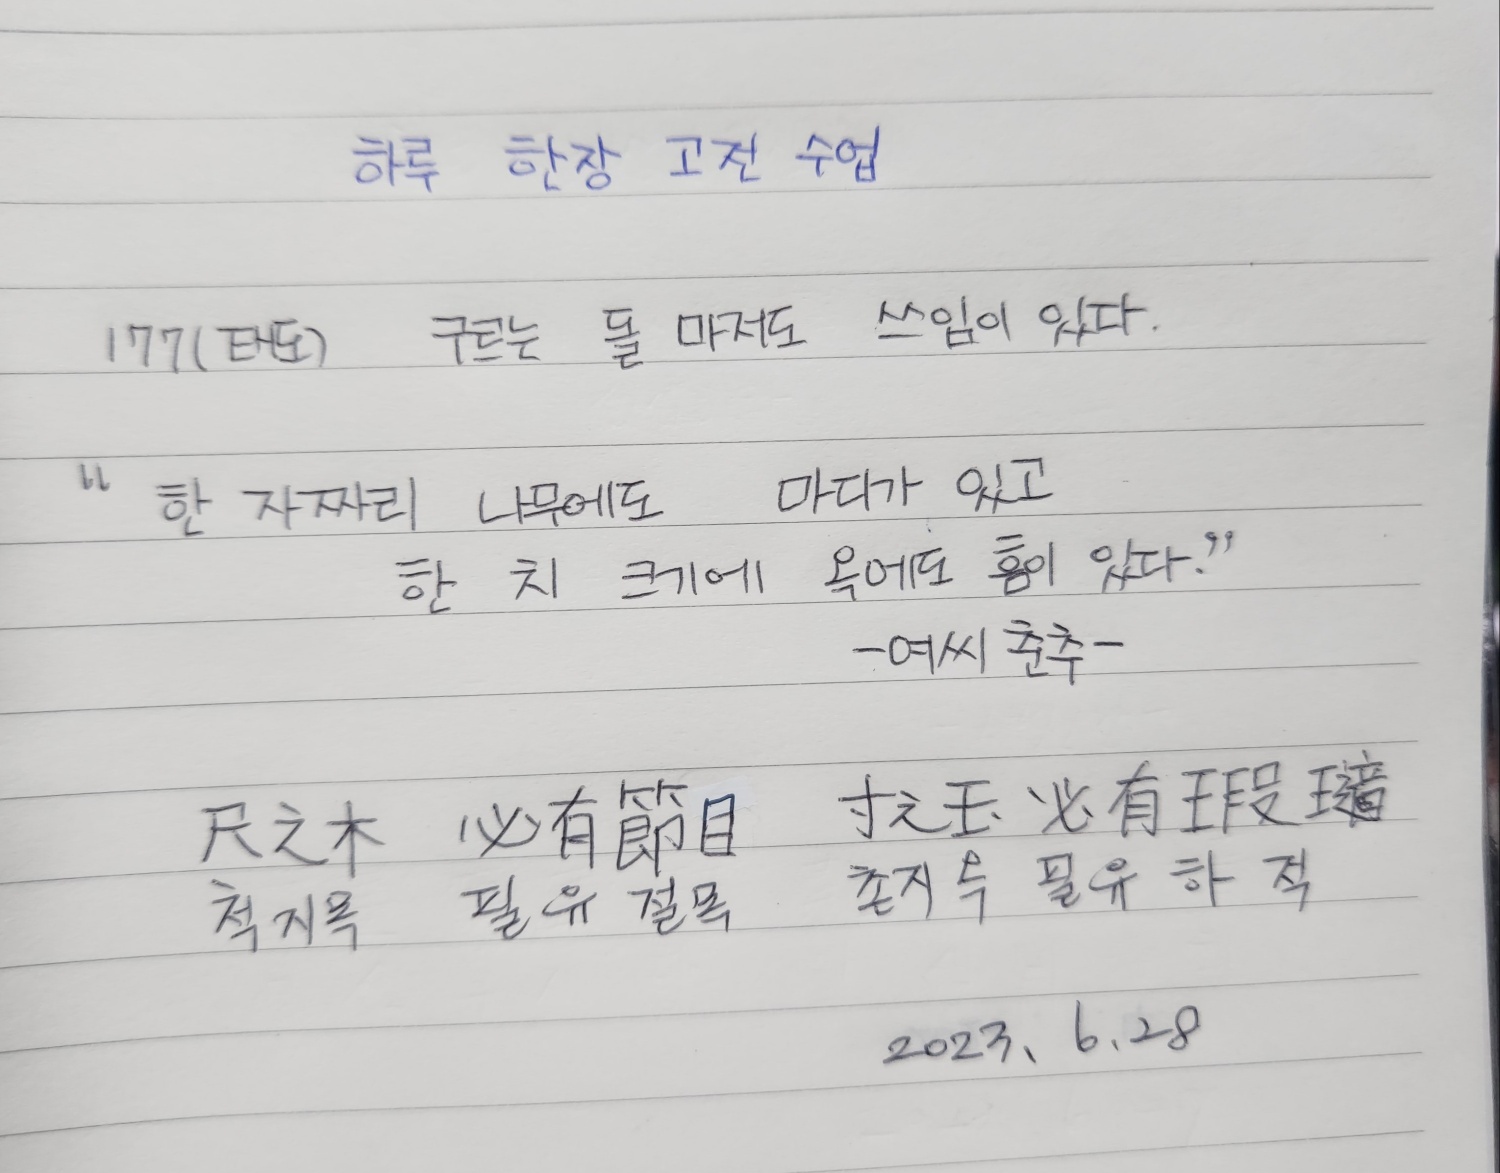 하루 한장 고전 수업
177(태도) 구르는 돌 마저도 쓰임이 있다.
"한 자짜리 나무에도 마디가 있고
한 치 크기에 옥에도 흠이 있다."
-여씨 춘추-
尺之木 必有節目 寸之玉 必有瑕瓋
척지목 필유절목 촌지옥 필유하적
2023. 6. 28